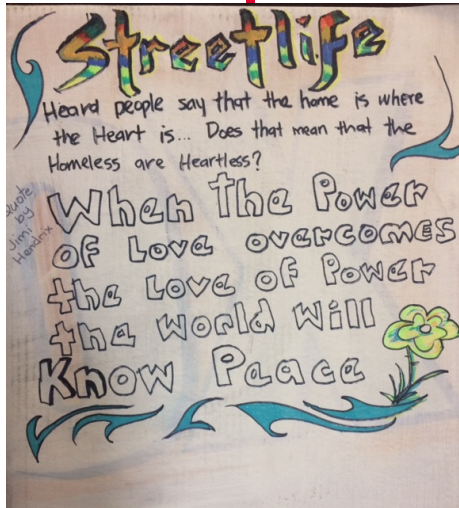 Streetlife
Heard people say that the home is where
the Heart is... Does that mean that the
Homeless are Heartless?
Quote
by
Jimi
Hendrix
When The Power
OF Love overcomes
the Love of Power
the World Will
Know Peace